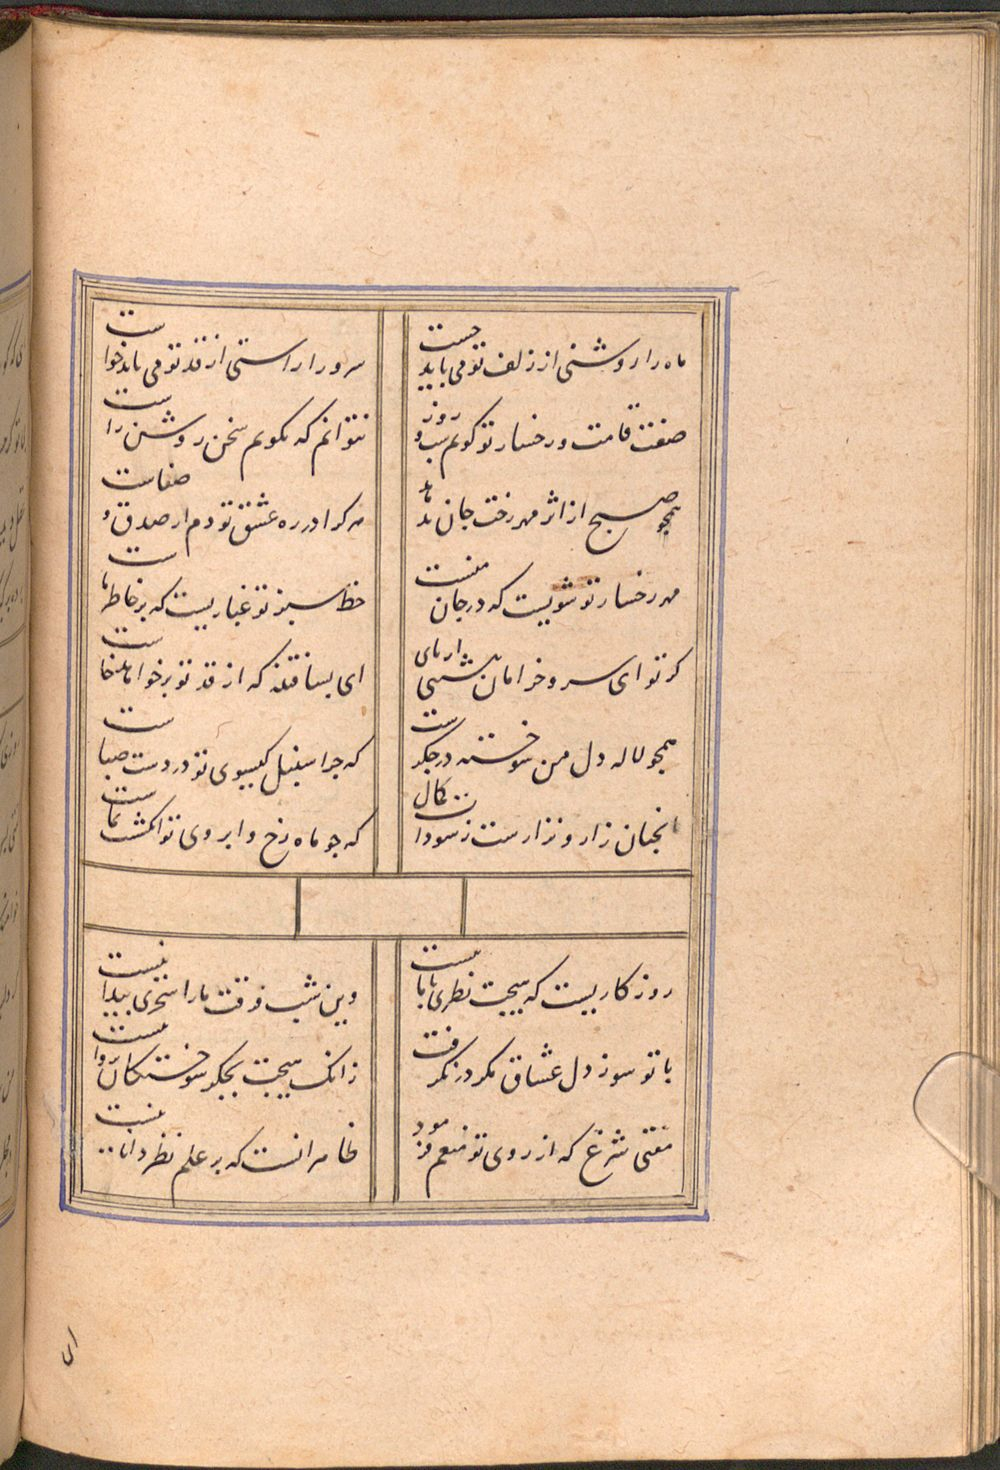 ماه را روشنی از زلف تو می باید جست
سرو را راستی از قد تو می باید خواست
صفت قامت و رخسار تو گویم شب و روز
نتوانم که نگویم سخن روشن راست
همجو صبح از اثر مهر رخت جان بدهد
هر کرا در ره عشق تو دم از صدق و صفاست
مهر رخسار تو شوریست که در جان منست
خط سبز تو غباریست که بر خاطر ماست
کر تو ای سرو خرامان بنشینی از پای
ای بسا فتنه که از قد تو بر خواهد خاست
همجو لاله دل من سوخته در جکر ست
که جرا سنبل کیسوی تو در دست صباست
انجنان زار و نزارست ز سودات کمال
که جو ماه رخ و ابروی تو انکشت نماست
روزکاریست که هیجت نظری با ما نیست
وین شب فرقت ما را سحری پیدا نیست
با تو سوز دل عشاق مکر در نکرفت
زانک هیجت بجکر سوختکان پروا نیست
مفتی شرع که از روی تو منعم فرمود
ظاهر انست که بر علم نظر دانا نیست
ای